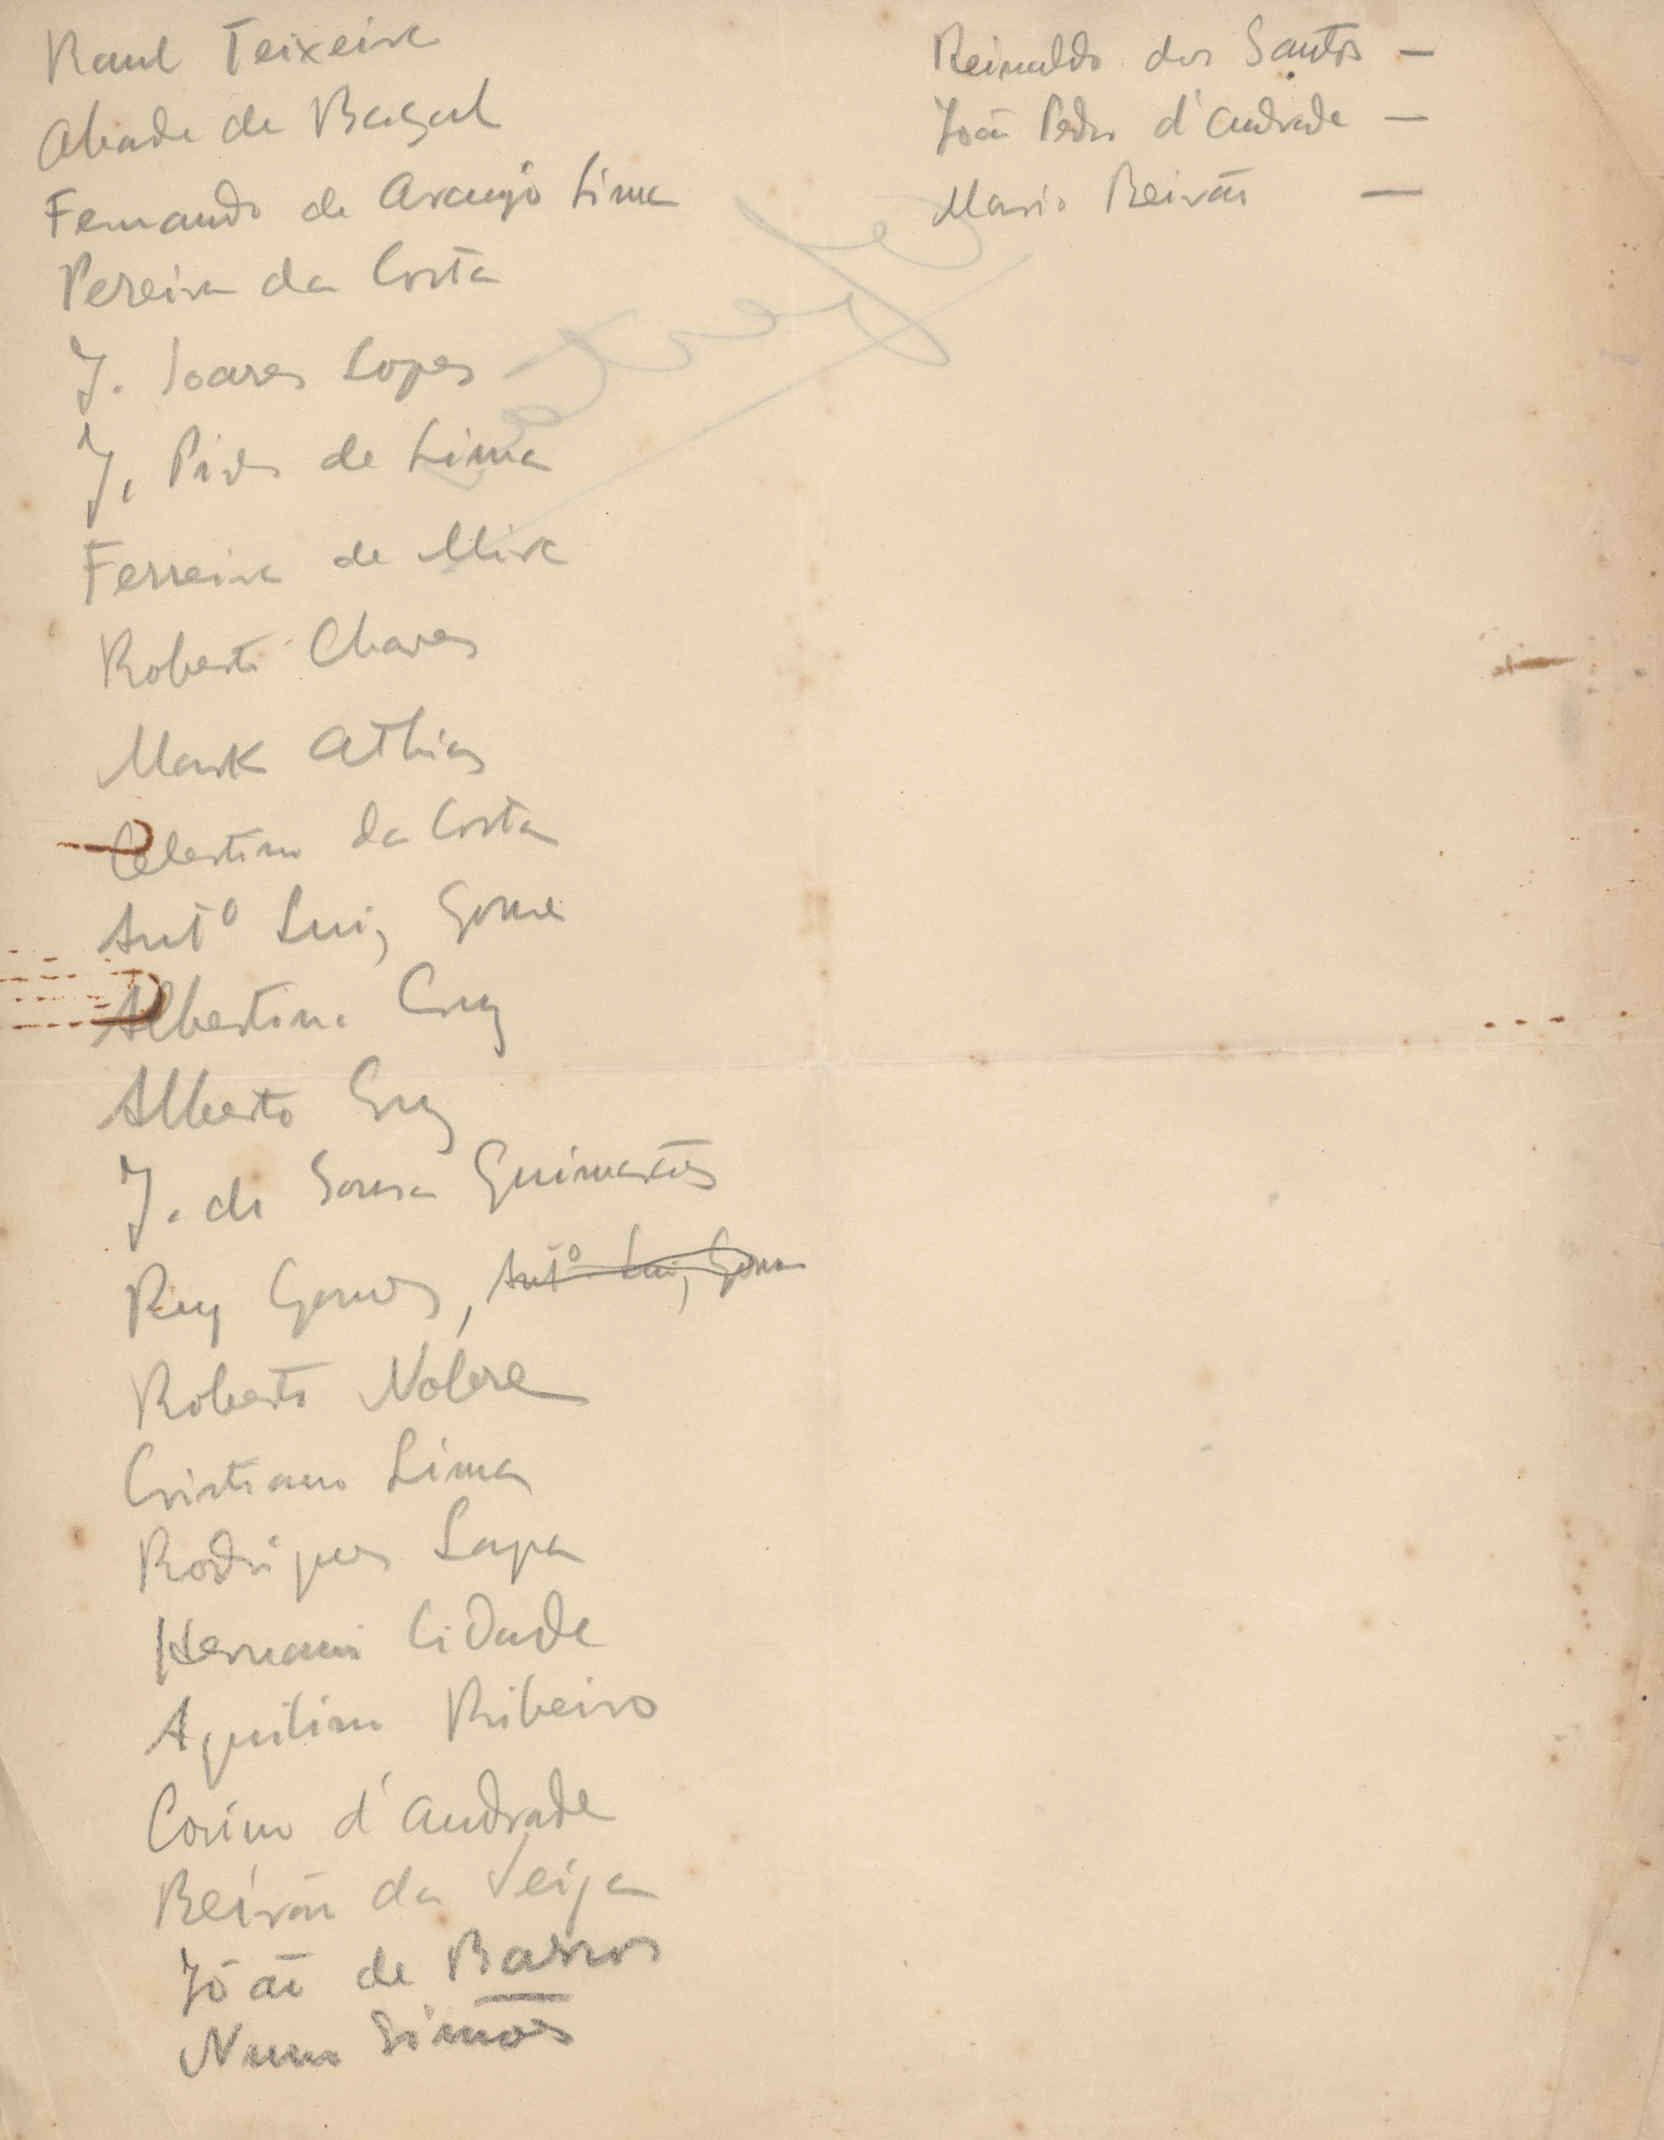 Raul Teixeira
Abade de Baçal
Fernando de Araujo Lima
Pereira da Costa
J. Soares Lopes
J. Pires de Lima
Ferreira de Mira
Roberto Chaves
Mark Athias
Celestino da Costa
Antº Luiz Gomes
Albertino Cruz
Alberto Cruz
J. de Sousa Guimarães
Ruy Gomes, Antº Luiz Gomes
Roberto Nobre
Cristiano Lima
Rodrigues Lapa
Hernani Cidade
Aquilino Ribeiro
d'Andrade
Beirão da Veiga
João de Barros
Nuno Simões
Reinaldo dos Santos —
João Pedro d'Andrade —
Mario Beirão —